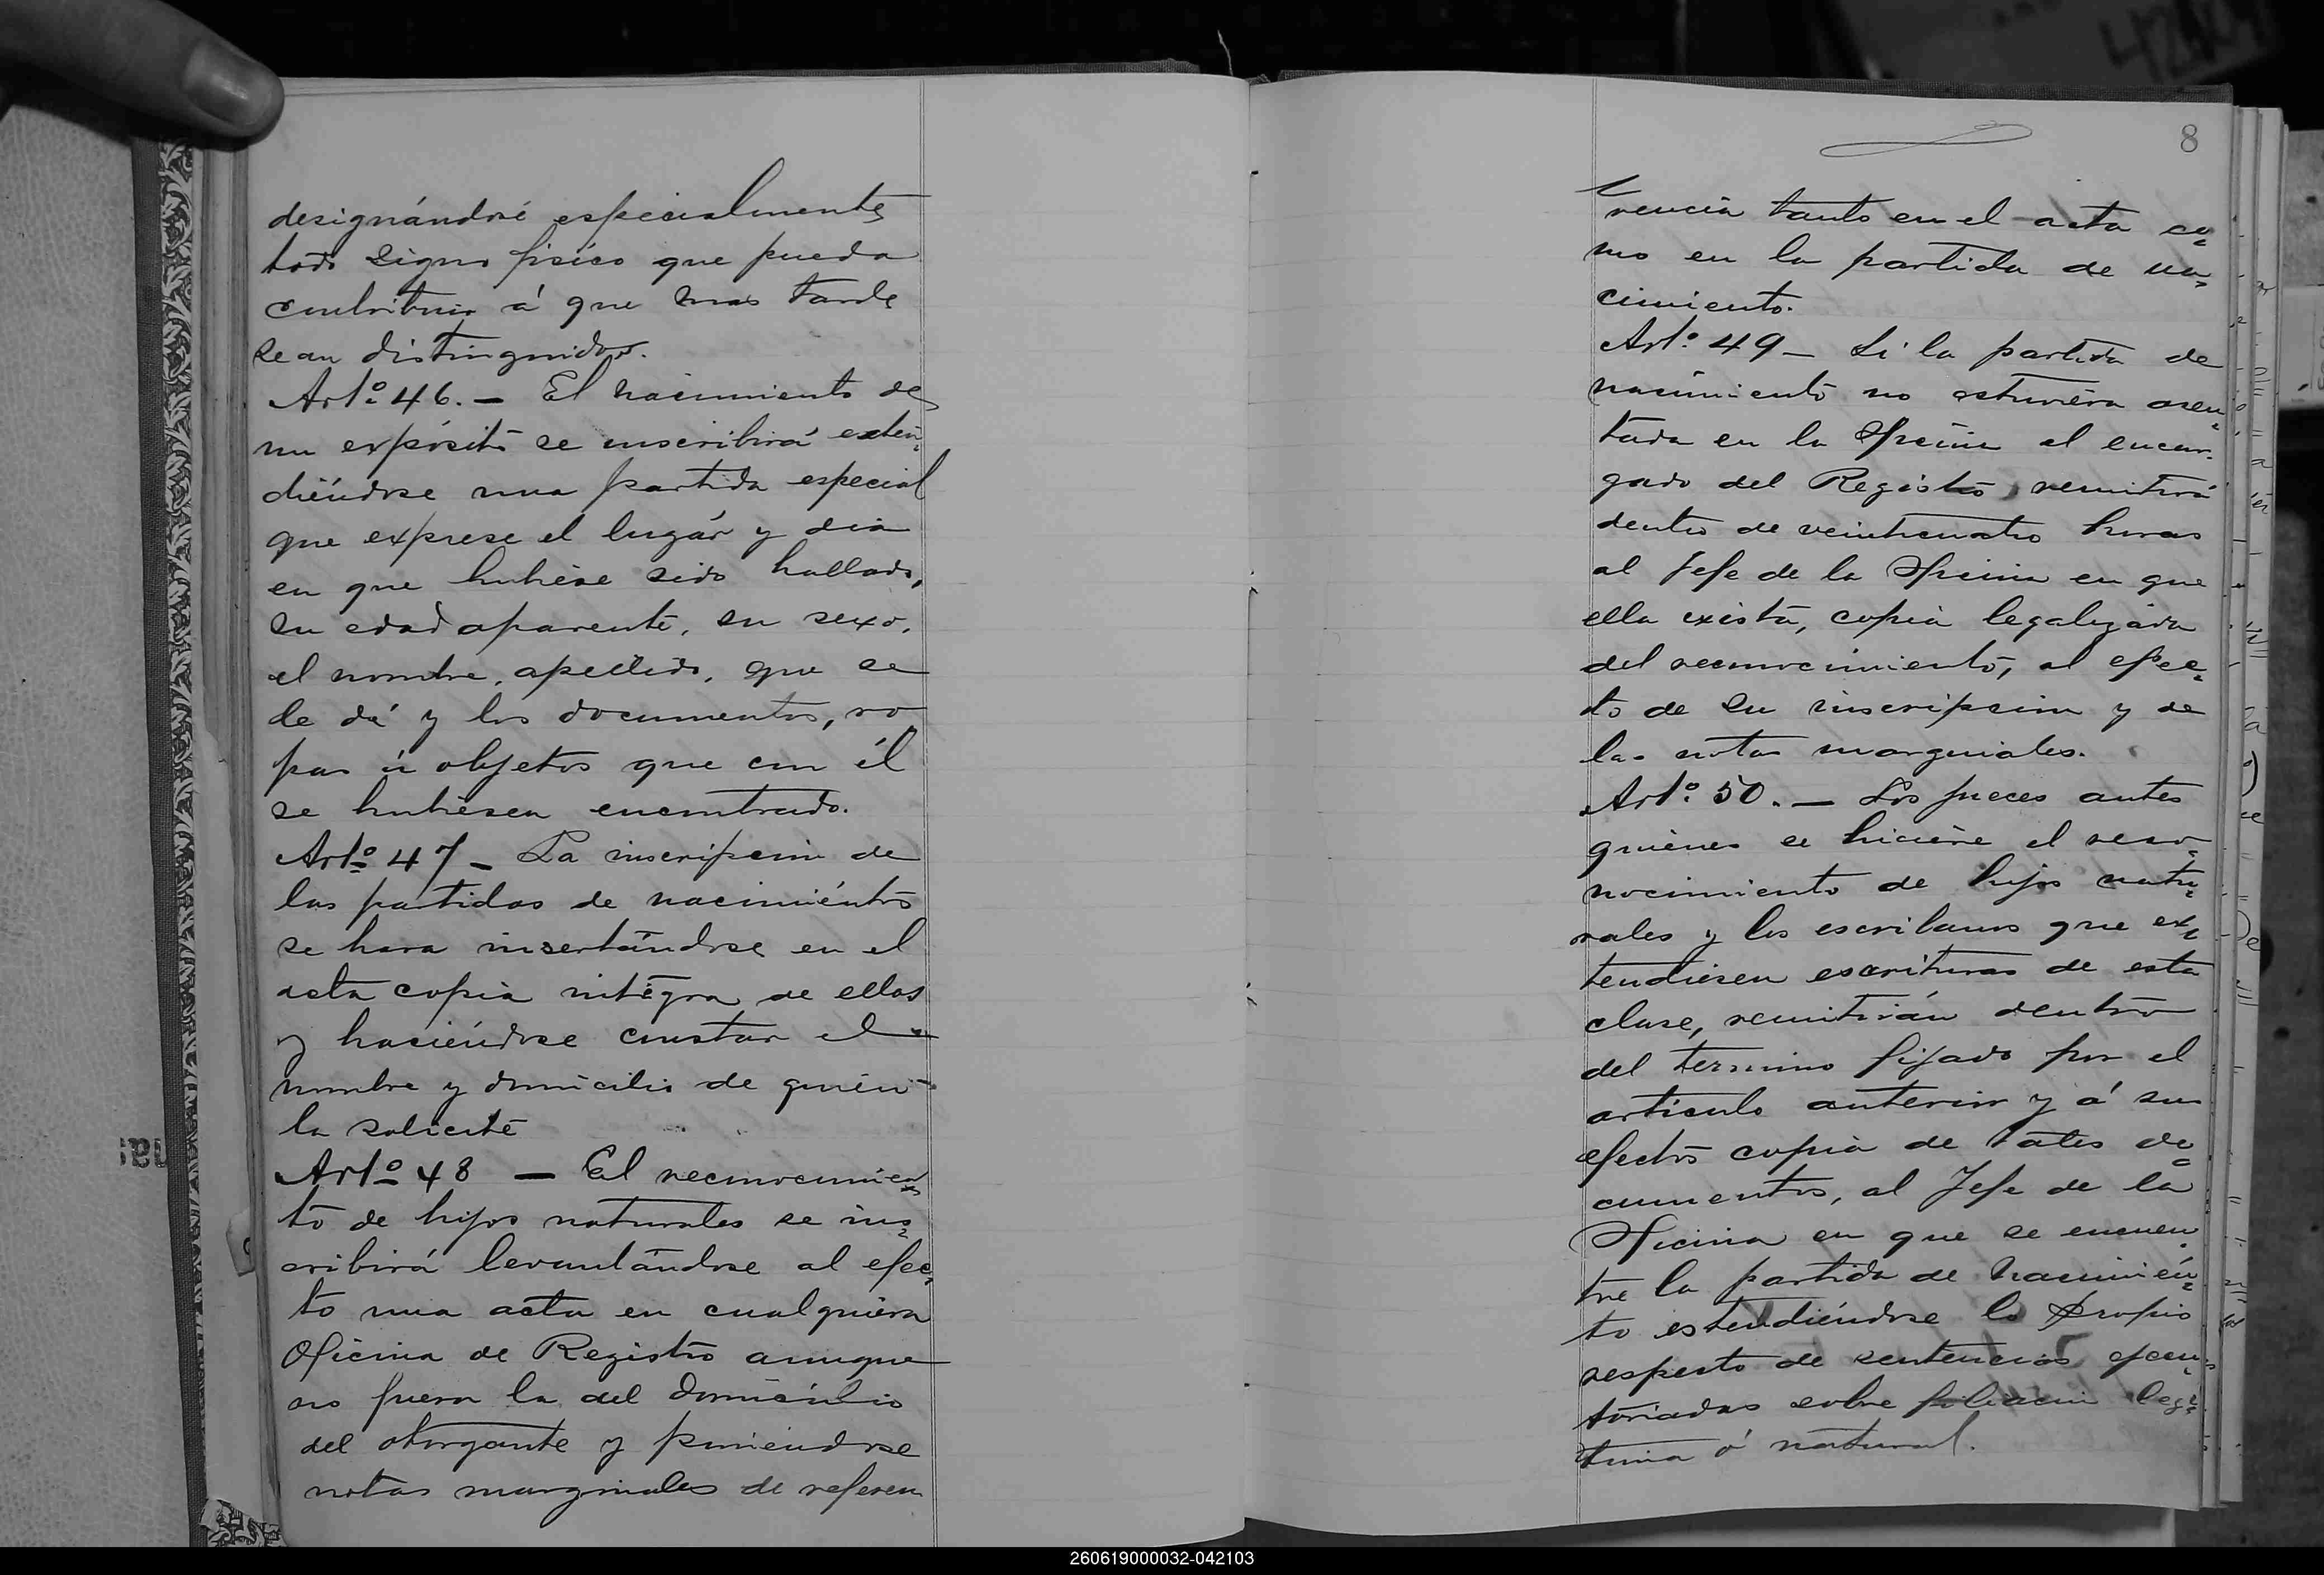 designándose especialmente
todo signo fisico que pueda
contribuir á que mas tarde
sean distinguidos.
Artº 46. — El nacimiento de
un expósito se inscribirá exten-
diéndose una partida especial
que exprese el lugár y dia
en que hubiese sido hallado,
su edad aparente, su sexo,
el nombre, apellido, que se
le dá y los documentos, ro
pas ú objetos que con él
se hubiesen encontrado.
Artº 47 — La inscripcion de
las partidas de nacimiéntos
se hara insertándose en el
acta copia intégra de ellas
y haciéndose constar el
nombre y domicilio de quién
la solicite
Artº 48 — El reconocimien=
to de hijos naturales se ins=
cribirá levantándose al efec=
to una acta en cualquiera
Oficina de Registro aunque
no fuera la del domicilio
del otorgante y poniendose
notas marginales de referen
8
rencia tanto en el acta co=
mo en la partida de na=
cimiento.
Artº 49 — Si la partida de
nacimiento no estuviera asen=
tada en la Oficina el encar-
gado del Registro, remitirá
dentro de veinticuatro horas
al Jefe de la Oficina en que
ella exista, copia legalizada
del reconocimiento, al efec=
to de su inscripcion y de
las notas marginales.
Artº 50. — Los jueces antes
quiénes se hiciere el reco=
nocimiento de hijos natu=
rales y los escribanos que ex=
tendiesen escrituras de esta
clase, remitirán dentro
del termino fijado por el
articulo anterior y á sus
efectos copia de tales do=
cumentos, al Jefe de la
Oficina en que se encuen=
tre la partida de nacimién=
to estendiéndose lo propio
respecto de sentencias ejecu=
toriadas sobre filiacion legí=
tima ó natural.
260619000032-042103